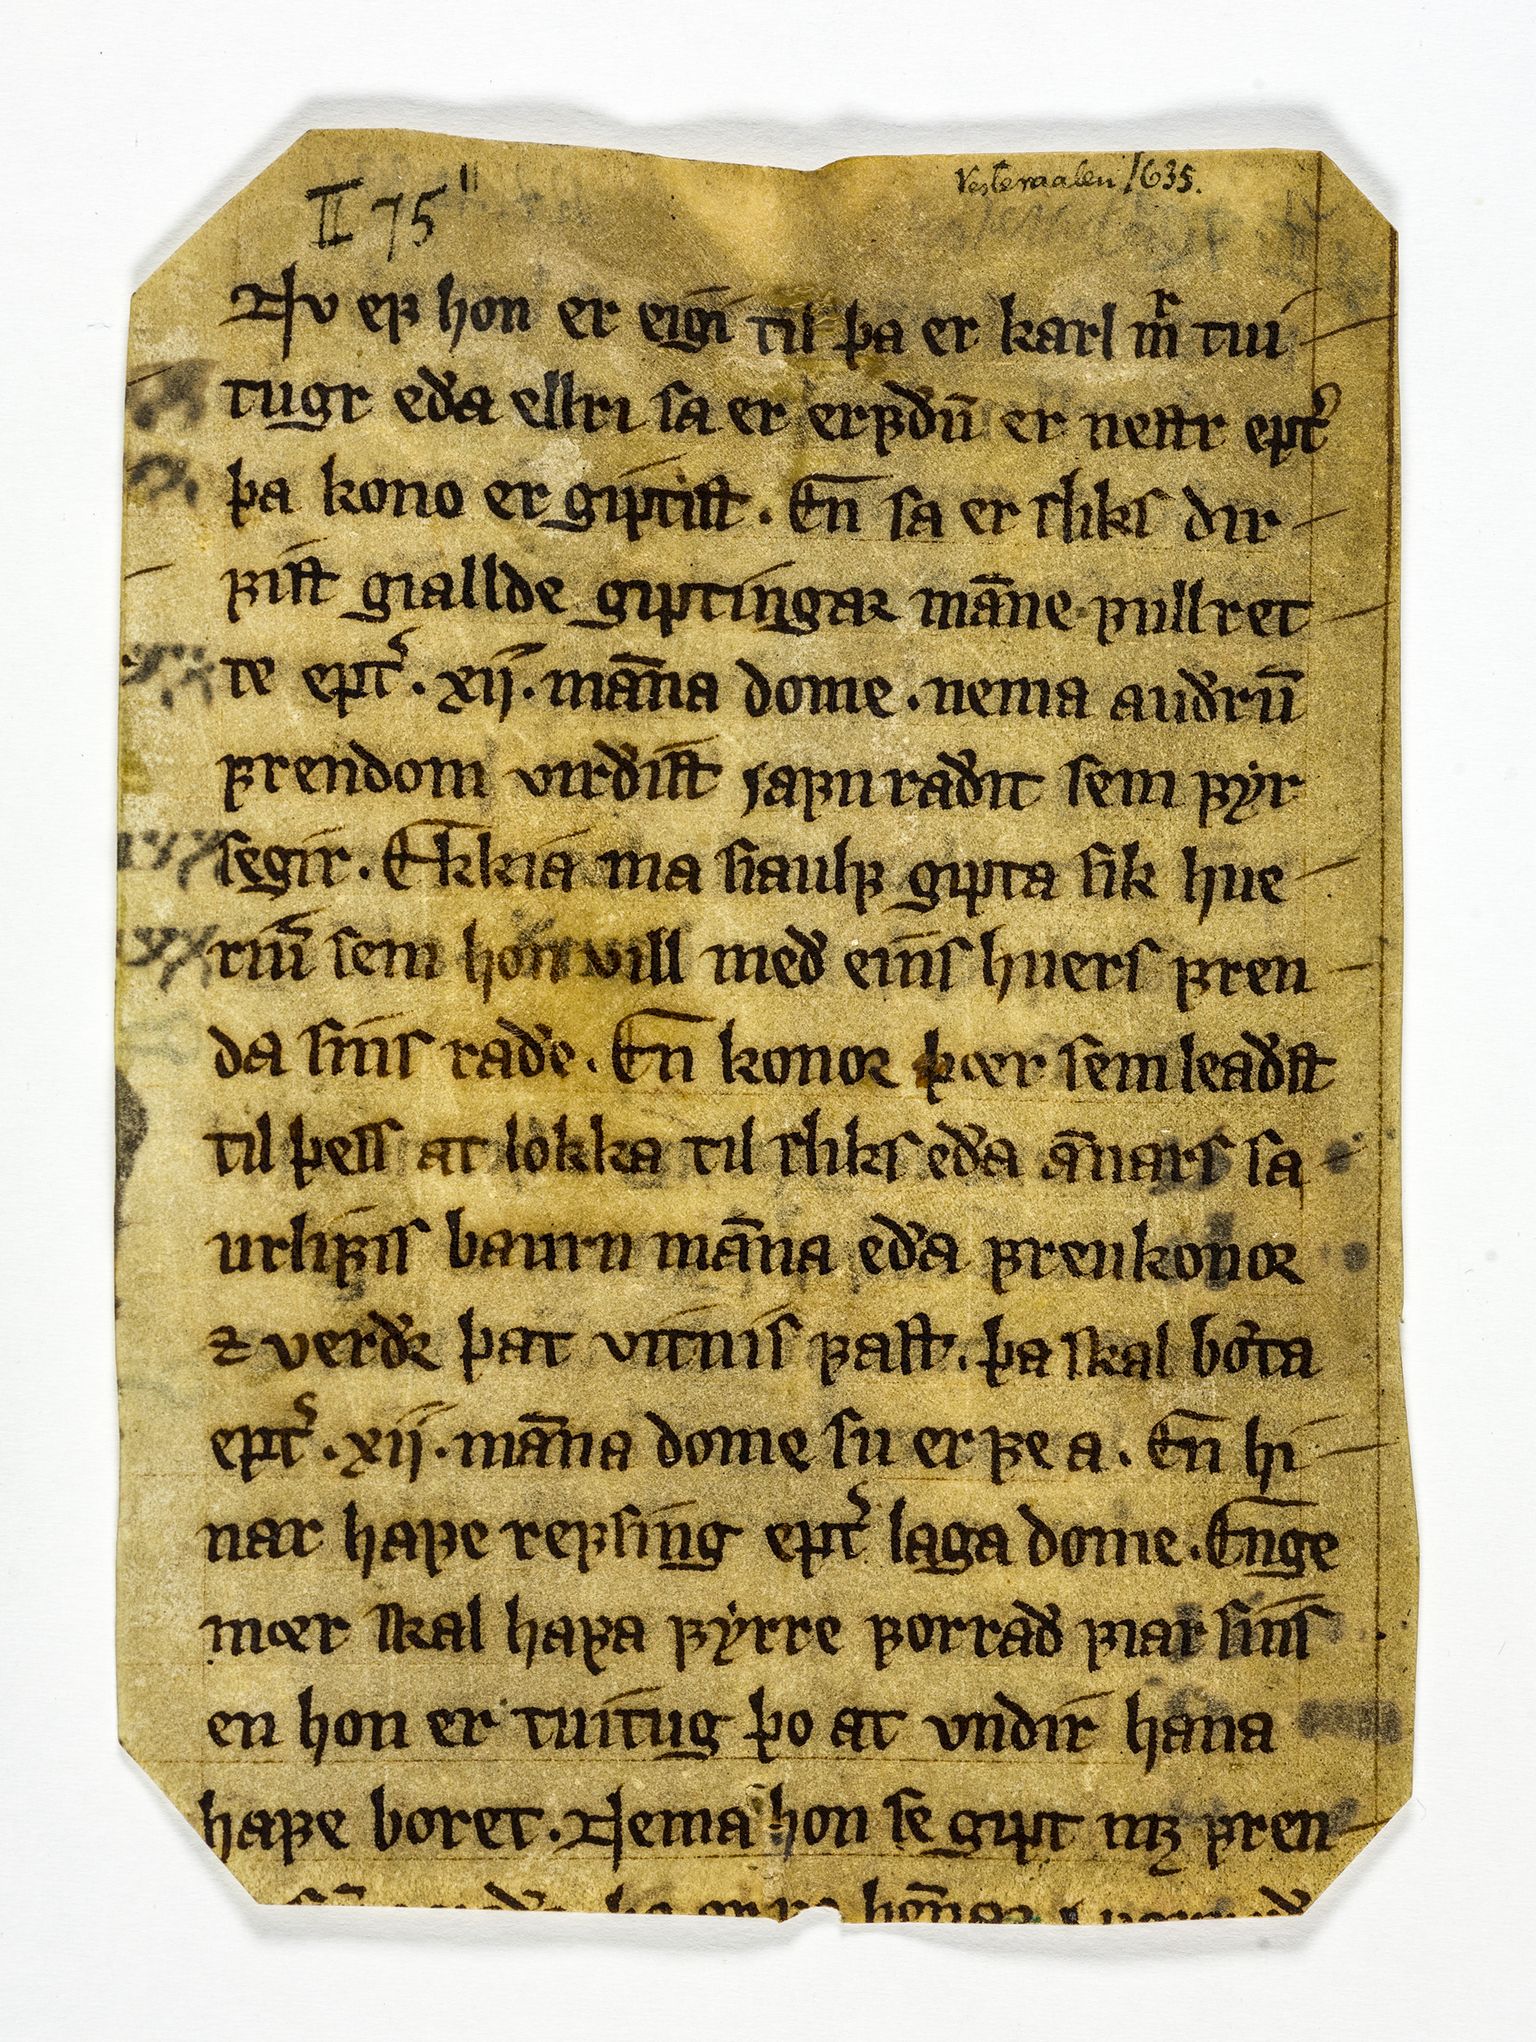 II 75"
Vesteraalen 1635.
Nv eꝼ hon er eigi til þa er karl m̄r tui
tugr eða ellri sa er erꝼðū er nestr ept͛
þa kono er giptist. En̄ sa er sliks dir
ꝼist giallde giptingaꝛ man̄e ꝼullret
te ept͛ .xíí. man̄a dome. nema auðrū
ꝼrendom virðist iaꝼn raðit sem ꝼẏr
segir. Ekkia ma siaulꝼ gipta sik hue
riū sem hon vill með eīns huers ꝼren
da sīns raðe. En̄ konoꝛ þœr sem leaðst
til þess at lokka til sliks eða an̄ars sa
urliꝼis baurn man̄a eða ꝼrenkonoꝛ
⁊ verðꝛ þat vitnis ꝼast. þa skal bǿta
ept͛ .xíí. man̄a dome su er ꝼe a. En̄ hi
nar haꝼe reꝼsing ept͛ laga dome. Enge
mœr skal haꝼa ꝼẏrre ꝼorrað ꝼiar sīns
en hon er tuitug þo at vndir han̄a
haꝼe boret. Nema hon se gipt mꝫ ꝼren